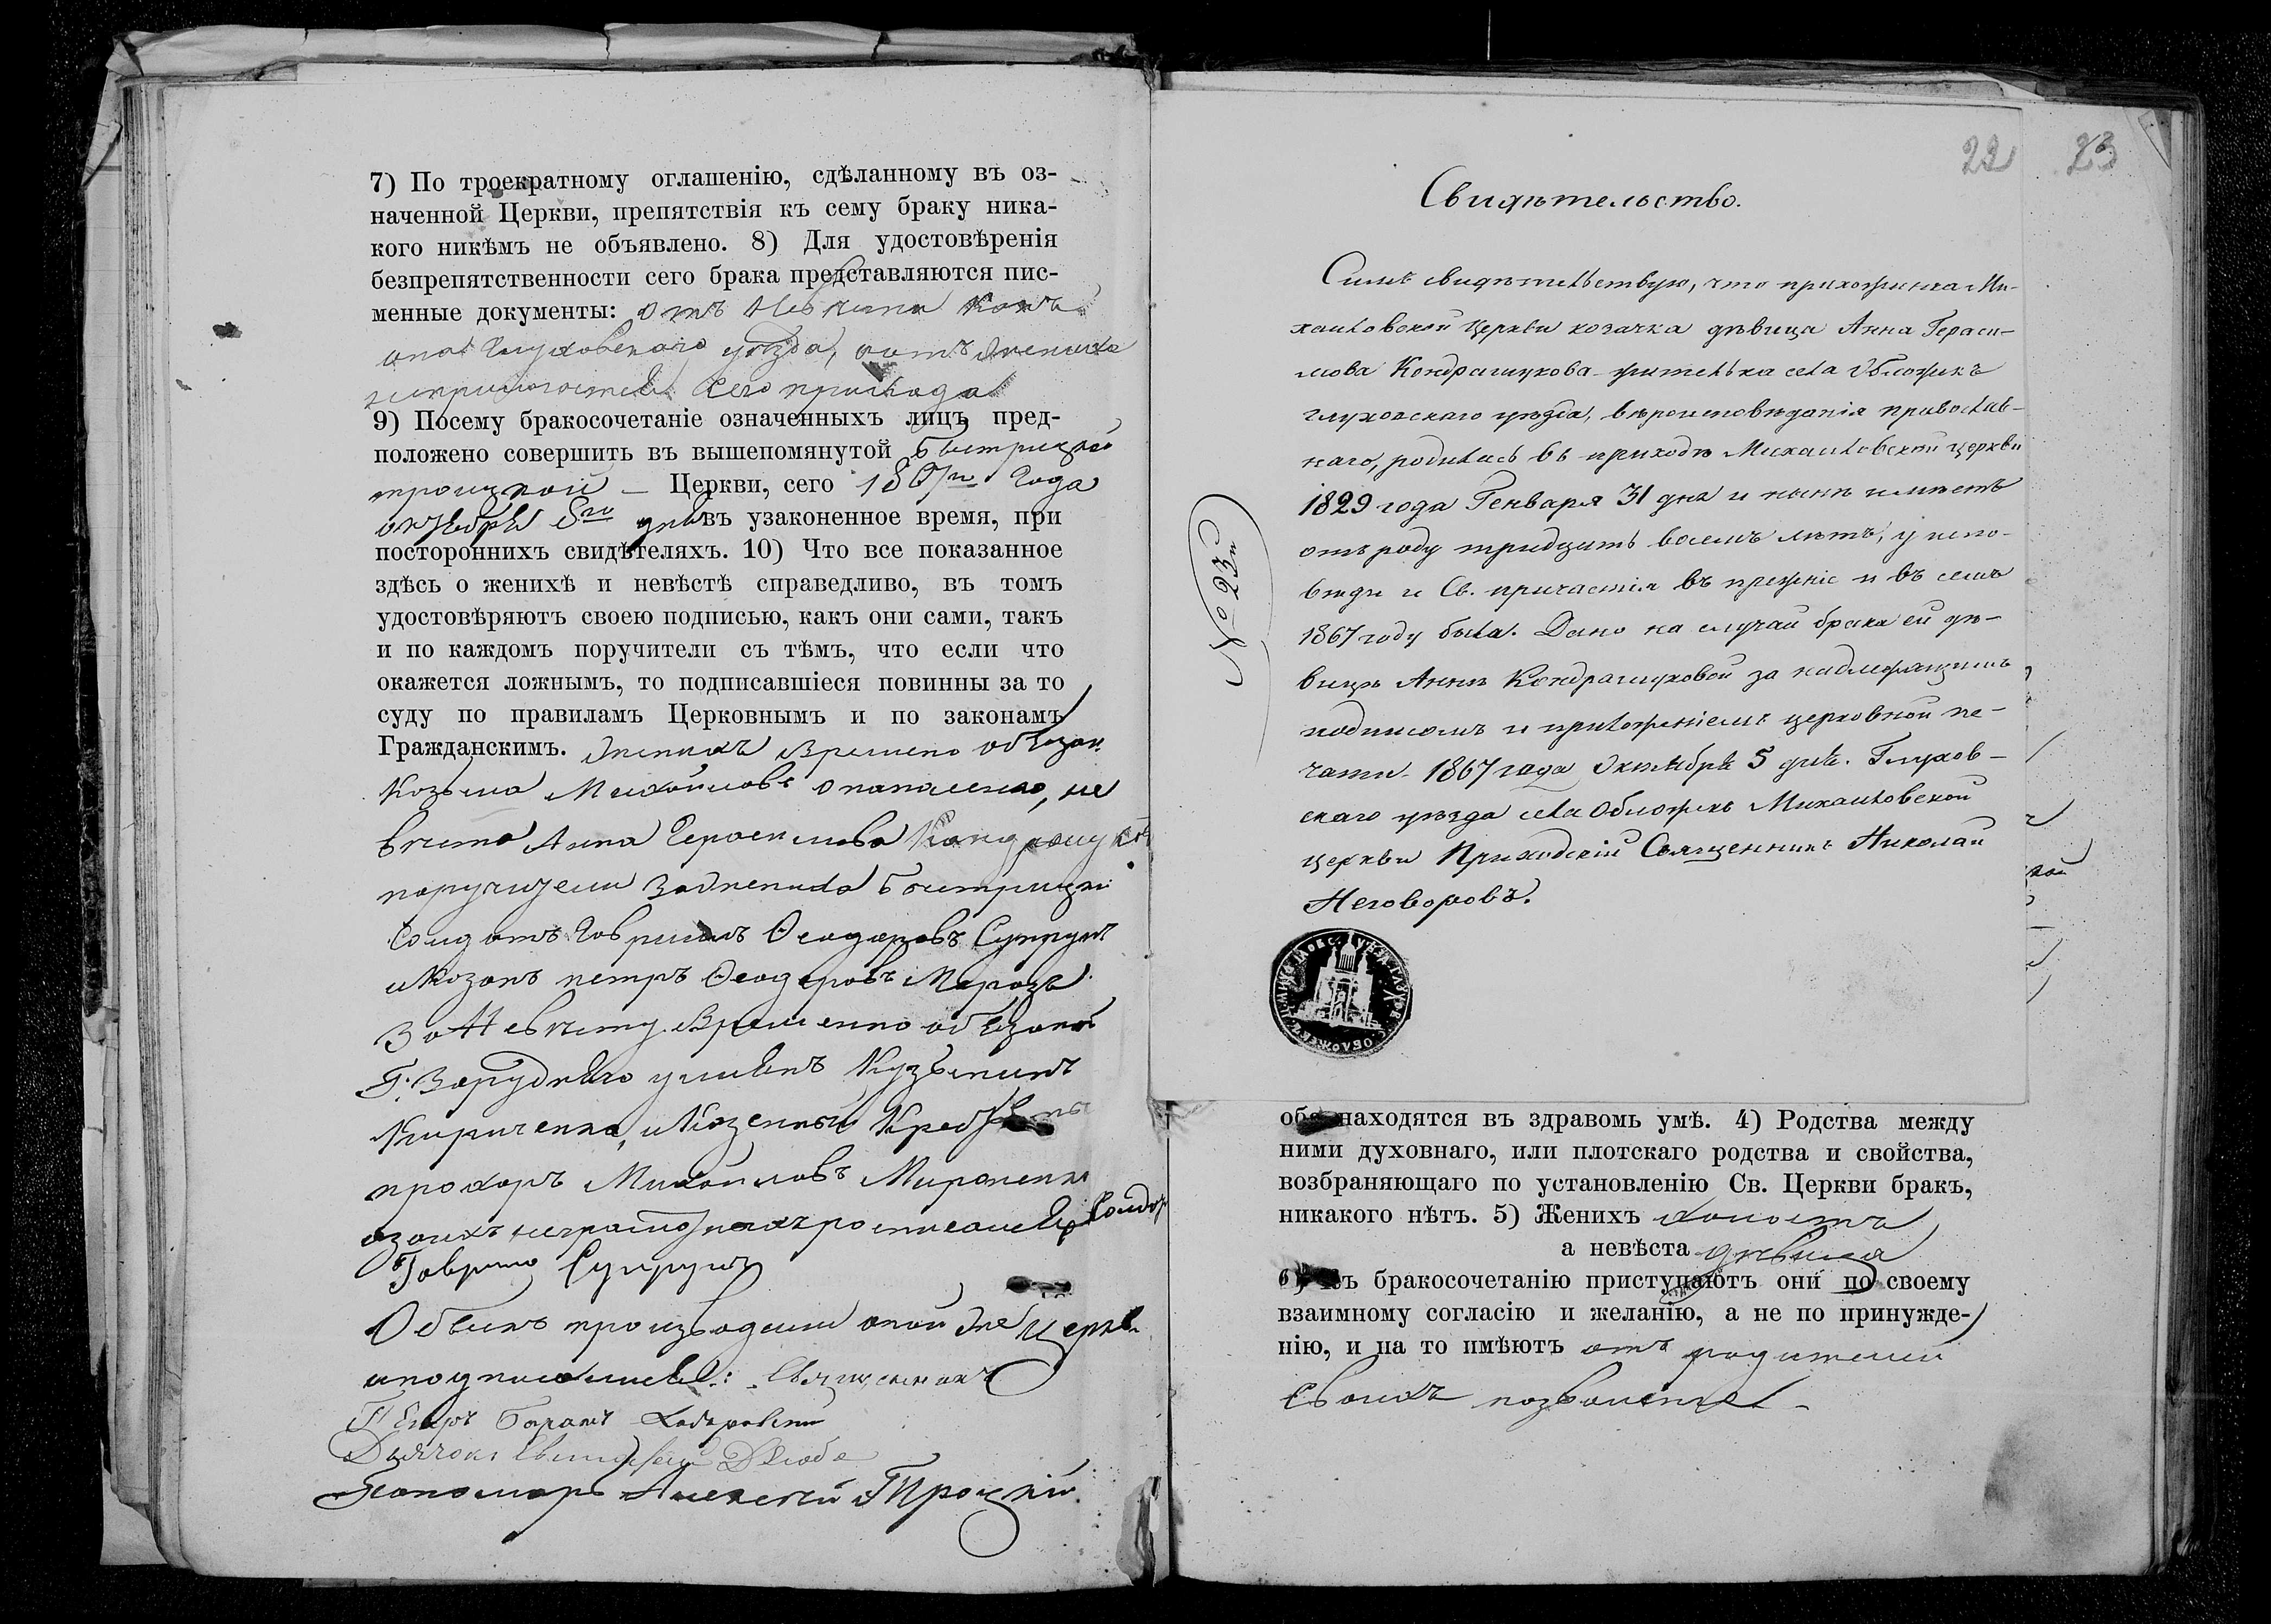 7) По троекратному оглашенію, сдѣланному въ оз-
наченной Церкви, препятствія къ сему браку ника-
кого никѣмъ не объявлено. 8) Для удостовѣренія
безпрепятственности сего брака представляются пис-
менные документы: отъ Невѣсты
Глуховскаго уѣзда, отъ жениха
сего прихода
9) Посему бракосочетаніе означенныхъ лицъ пред-
положено совершить въ вышепомянутой Быстрицкой
троицкой — Церкви, сего 1867го Года
октября 8го дня въ узаконенное время, при
постороннихъ свидѣтеляхъ. 10) Что все показанное
здѣсь о женихѣ и невѣстѣ справедливо, въ томъ
удостовѣряютъ своею подписью, какъ они сами, такъ
и по каждомъ поручители съ тѣмъ, что если что
окажется ложнымъ, то подписавшіеся повинны за то
суду по правиламъ Церковнымъ и по законамъ
Гражданскимъ. Женихъ Времено обязан
Козьма Михайловъ не
вѣста Анна Герасимова
поручители За жениха Быстрицкі
Солдатъ Гавриилъ Ѳеодоровъ Супрунъ
и Козакъ петръ Ѳеодоровъ Морозъ
За Невѣсту Временно обязаный
Г. Кузьминъ
Кириченко, и Казенный
прохоръ Михайловъ Мироненко
Солдат
Гаврило Супрунъ
Обыскъ производили оной же Церкв
и подписались: Священникъ
Дьячокъ
Пономарь Алексѣй Троцкій
22 23
Свидѣтельство.
Симъ свидѣтельствую, что прихожанка Ми-
хаиловской Церкви козачка дѣвица Анна Гераси-
мова Кондрашукова жителька села Обложекъ
глуховскаго уѣзда, вѣроисповѣданія православ-
наго, родилась въ приходѣ Михаиловской церкви
1829 года Генваря 31 дня и нынѣ имѣетъ
отъ роду тридцать восемъ лѣтъ, у испо-
вѣди и Св. причастія въ прежніе и въ семъ
1867 году была. Дано на случай брака ей дѣ-
вицѣ Аннѣ Кондрашуковой за надлежащимъ
подписомъ и приложеніемъ церковной пе-
чати 1867 года Октября 5 дня. Глухов-
скаго уѣзда села Обложекъ Михаиловской
церкви Приходскій Священникъ Николай
Неговоровъ.
№ 23й
обa находятся въ здравомъ умѣ. 4) Родства между
ними духовнаго, или плотскаго родства и свойства,
возбраняющаго по установленію Св. Церкви бракъ,
никакого нѣтъ. 5) Женихъ холостъ
а невѣста дѣвица
6) Къ бракосочетанію приступаютъ они по своему
взаимному согласію и желанію, а не по принужде-
нію, и на то имѣютъ отъ родителей
своихъ позволеніе